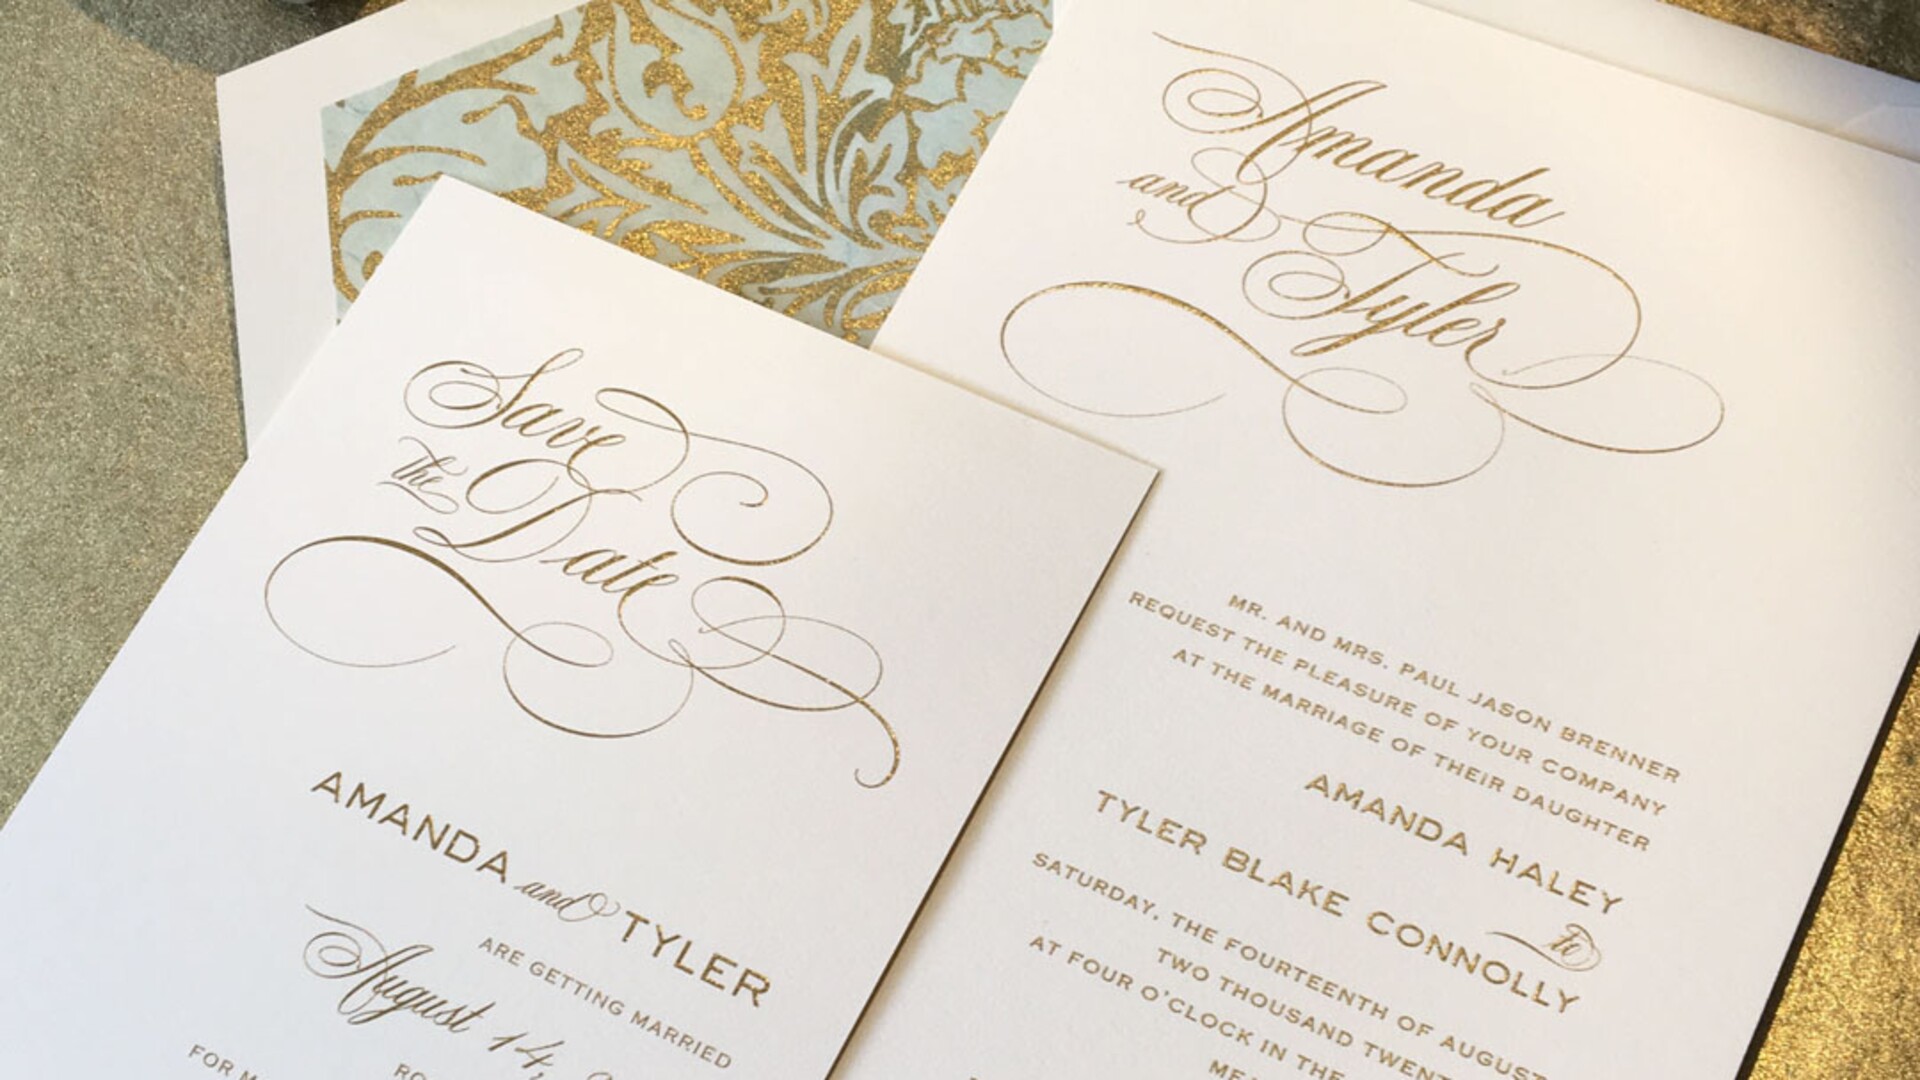 Save
the Date
AMANDA and TYLER
ARE GETTING MARRIED
August 14,
FOR
Amanda
and Tyler
MR. AND MRS. PAUL JASON BRENNER
REQUEST THE PLEASURE OF YOUR COMPANY
AT THE MARRIAGE OF THEIR DAUGHTER
AMANDA HALEY
to
TYLER BLAKE CONNOLLY
SATURDAY, THE FOURTEENTH OF AUGUST
TWO THOUSAND
AT FOUR O'CLOCK IN THE